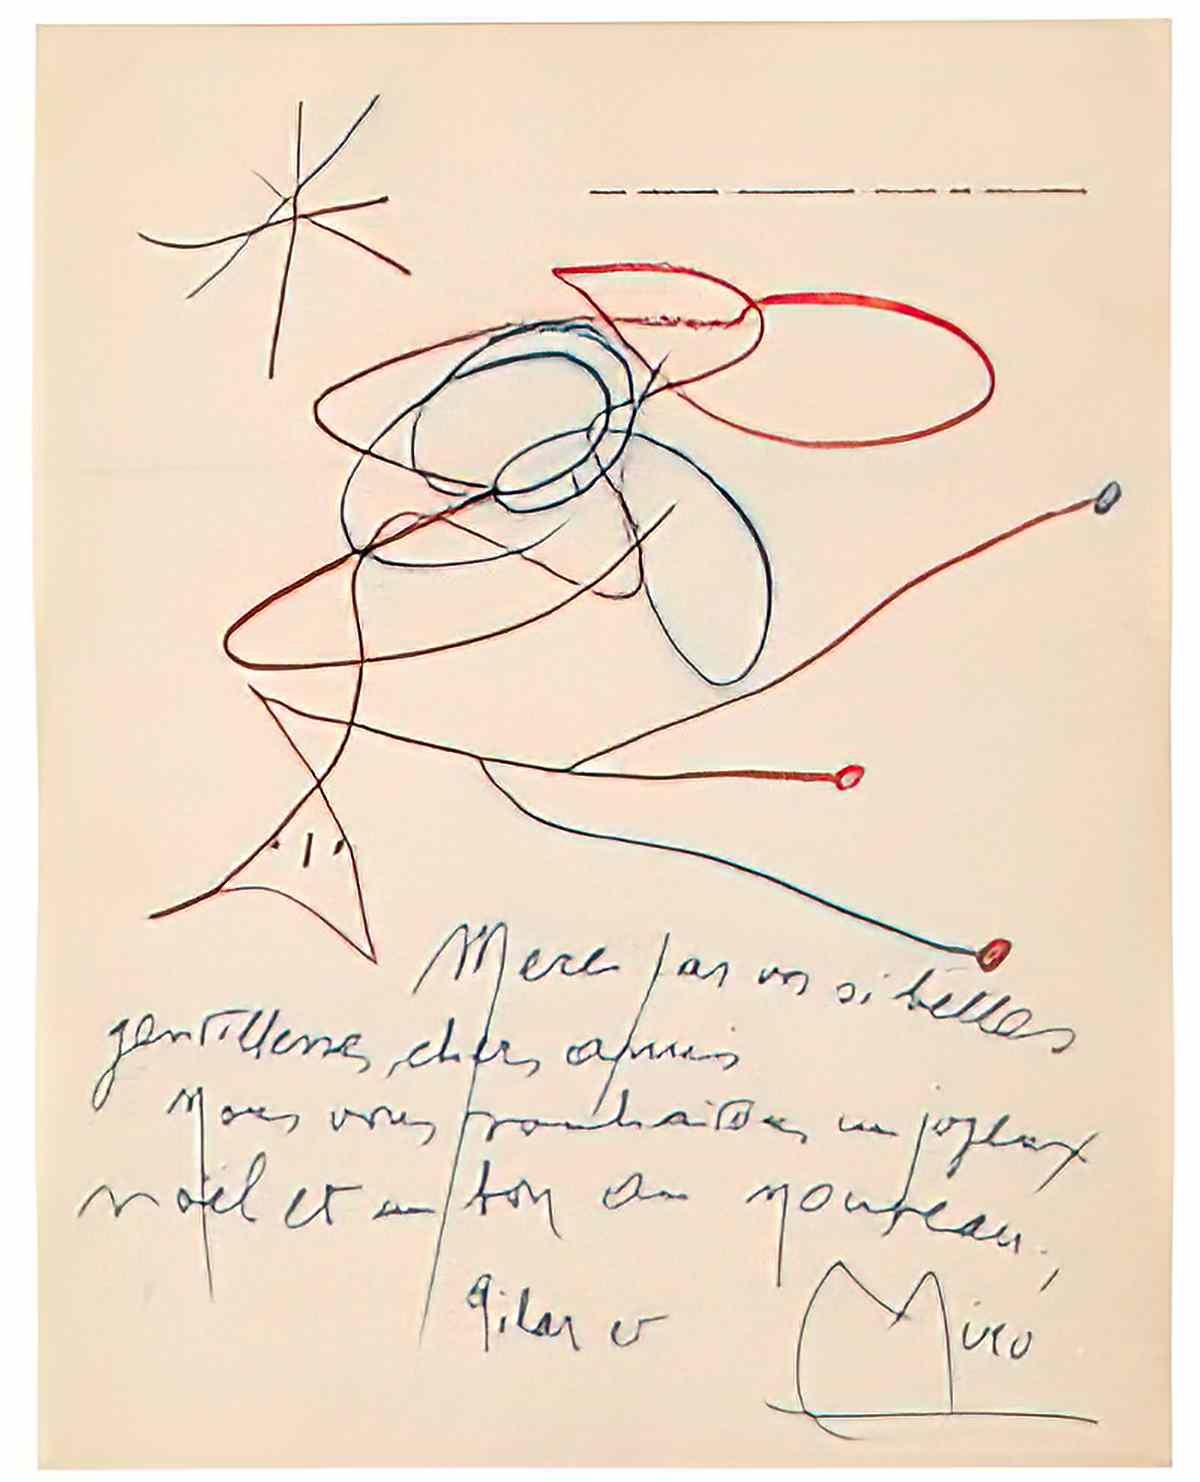 Merci par vos si belles
gentillesses, chers amis
Nous vous souhaitons un joyeux
noël et un bon an nouveau,
Pilar et Miró